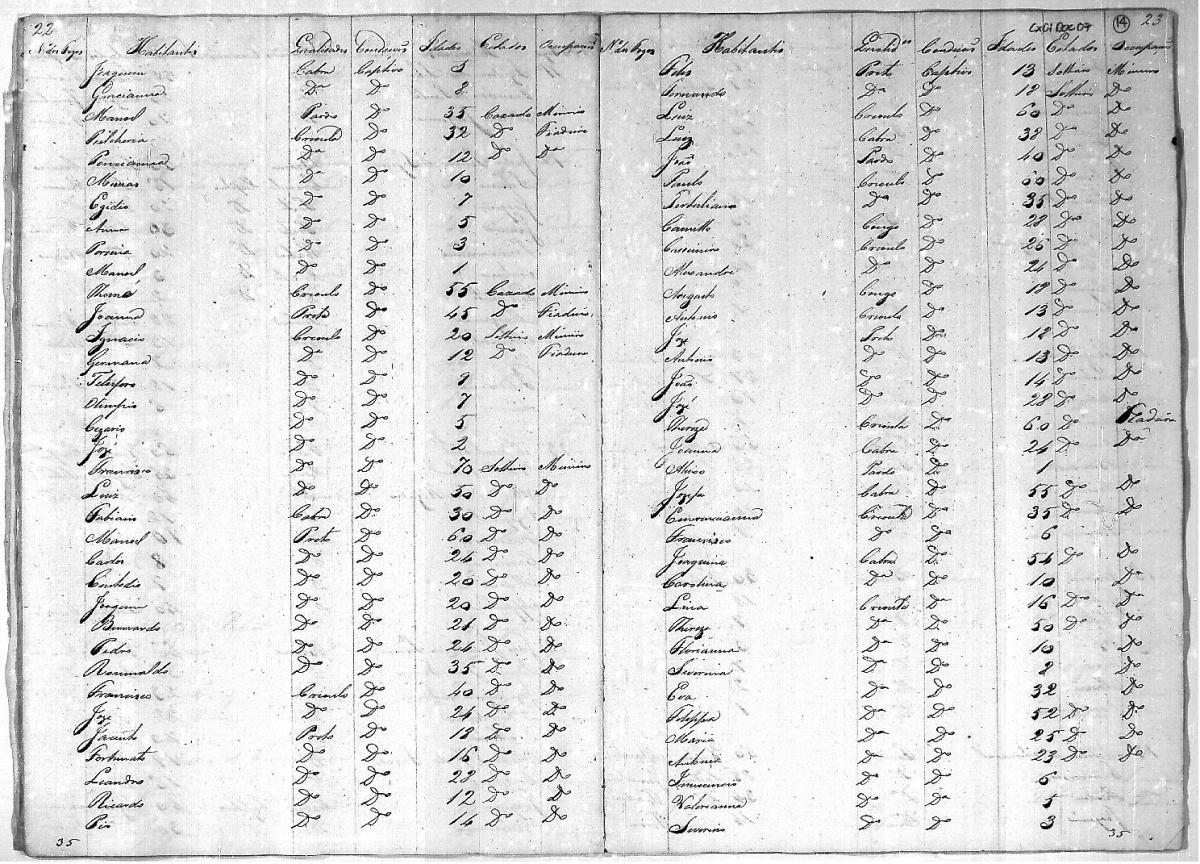 22
Nº dos Fogos Habitantes Qualidades Condicões Idades Estados Occupações
Joaquim Cabra Captivo 5
Graciana Dª Dº 8
Manoel Pardo Dº 35 Cazado Mineiro
Pulcheria Crioula Dº 32 Dº Fiadeira
Dª Dº 12 Dº Dª
Dº Dº 10
Egidio Dº Dº 7
Anna Dº Dº 5
Dº Dº 3
Manoel Dº Dº 1
Thomé Crioulo Dº 55 Cazado Mineiro
Joanna Preta Dº 45 Dº Fiadeira
Ignacio Crioulo Dº 20 Solteiro Mineiro
Germana Dª Dº 12 Dº Fiadeira
Telesforo Dº Dº 9
Olimpio Dº Dº 7
Cezario Dº Dº 5
José Dº Dº 2
Francisco Dº Dº 70 Solteiro Mineiro
Luiz Dº Dº 50 Dº Dº
Fabiano Cabra Dº 30 Dº Dº
Manoel Preto Dº 60 Dº Dº
Carlos Dº Dº 24 Dº Dº
Custodio Dº Dº 20 Dº Dº
Joaquim Dº Dº 20 Dº Dº
Bernardo Dº Dº 21 Dº Dº
Pedro Dº Dº 24 Dº Dº
Romualdo Dº Dº 35 Dº Dº
Francisco Crioulo Dº 40 Dº Dº
Joze Dº Dº 24 Dº Dº
Jacinto Preto Dº 18 Dº Dº
Fortunato Dº Dº 16 Dº Dº
Leandro Dº Dº 22 Dº Dº
Ricardo Dº Dº 12 Dº Dº
Pio Dº Dº 14 Dº Dº
35
Cx01Doc07 14 23
Nº dos Fogos Habitantes Qualidades Condicões Idades Estados Occupações
Felis Preto Captivo 13 Solteiro Mineiro
Fernando Dº Dº 12 Solteiro Dº
Luiz Crioulo Dº 60 Dº Dº
Luiz Cabra Dº 38 Dº Dº
João Pardo Dº 40 Dº Dº
Paulo Crioulo Dº 60 Dº Dº
Tertuliano Dº Dº 35 Dº Dº
Camillo Congo Dº 28 Dº Dº
Crioulo Dº 26 Dº Dº
Alexandre Dº Dº 24 Dº Dº
Augusto Congo Dº 19 Dº Dº
Antonio Crioulo Dº 13 Dº Dº
Joze Preto Dº 18 Dº Dº
Antonio Dº Dº 13 Dº Dº
João Dº Dº 14 Dº Dº
José Dº Dº 28 Dº Dº
Thereza Crioula Dº 60 Dº Fiadeira
Joanna Cabra Dº 24 Dº Dª
Pardo Dº 1
Jozefa Cabra Dº 55 Dº Dº
Crioula Dº 35 Dº Dº
Francisco Dº Dº 6
Joaquina Cabra Dº 54 Dº Dº
Carolina Dª Dº 10 Dª
Lina Crioula Dº 16 Dº Dª
Thereza Dª Dº 50 Dº Dº
Florianna Dª Dº 10 Dº
Severina Dª Dº 8 Dº
Eva Dª Dº 32 Dº
Dª Dº 52 Dº Dº
Maria Dª Dº 25 Dº Dº
Antonia Dª Dº 23 Dº Dº
Innocencio Dº Dº 6
Valerianna Dº Dª 5
Severino Dº Dº 3
35